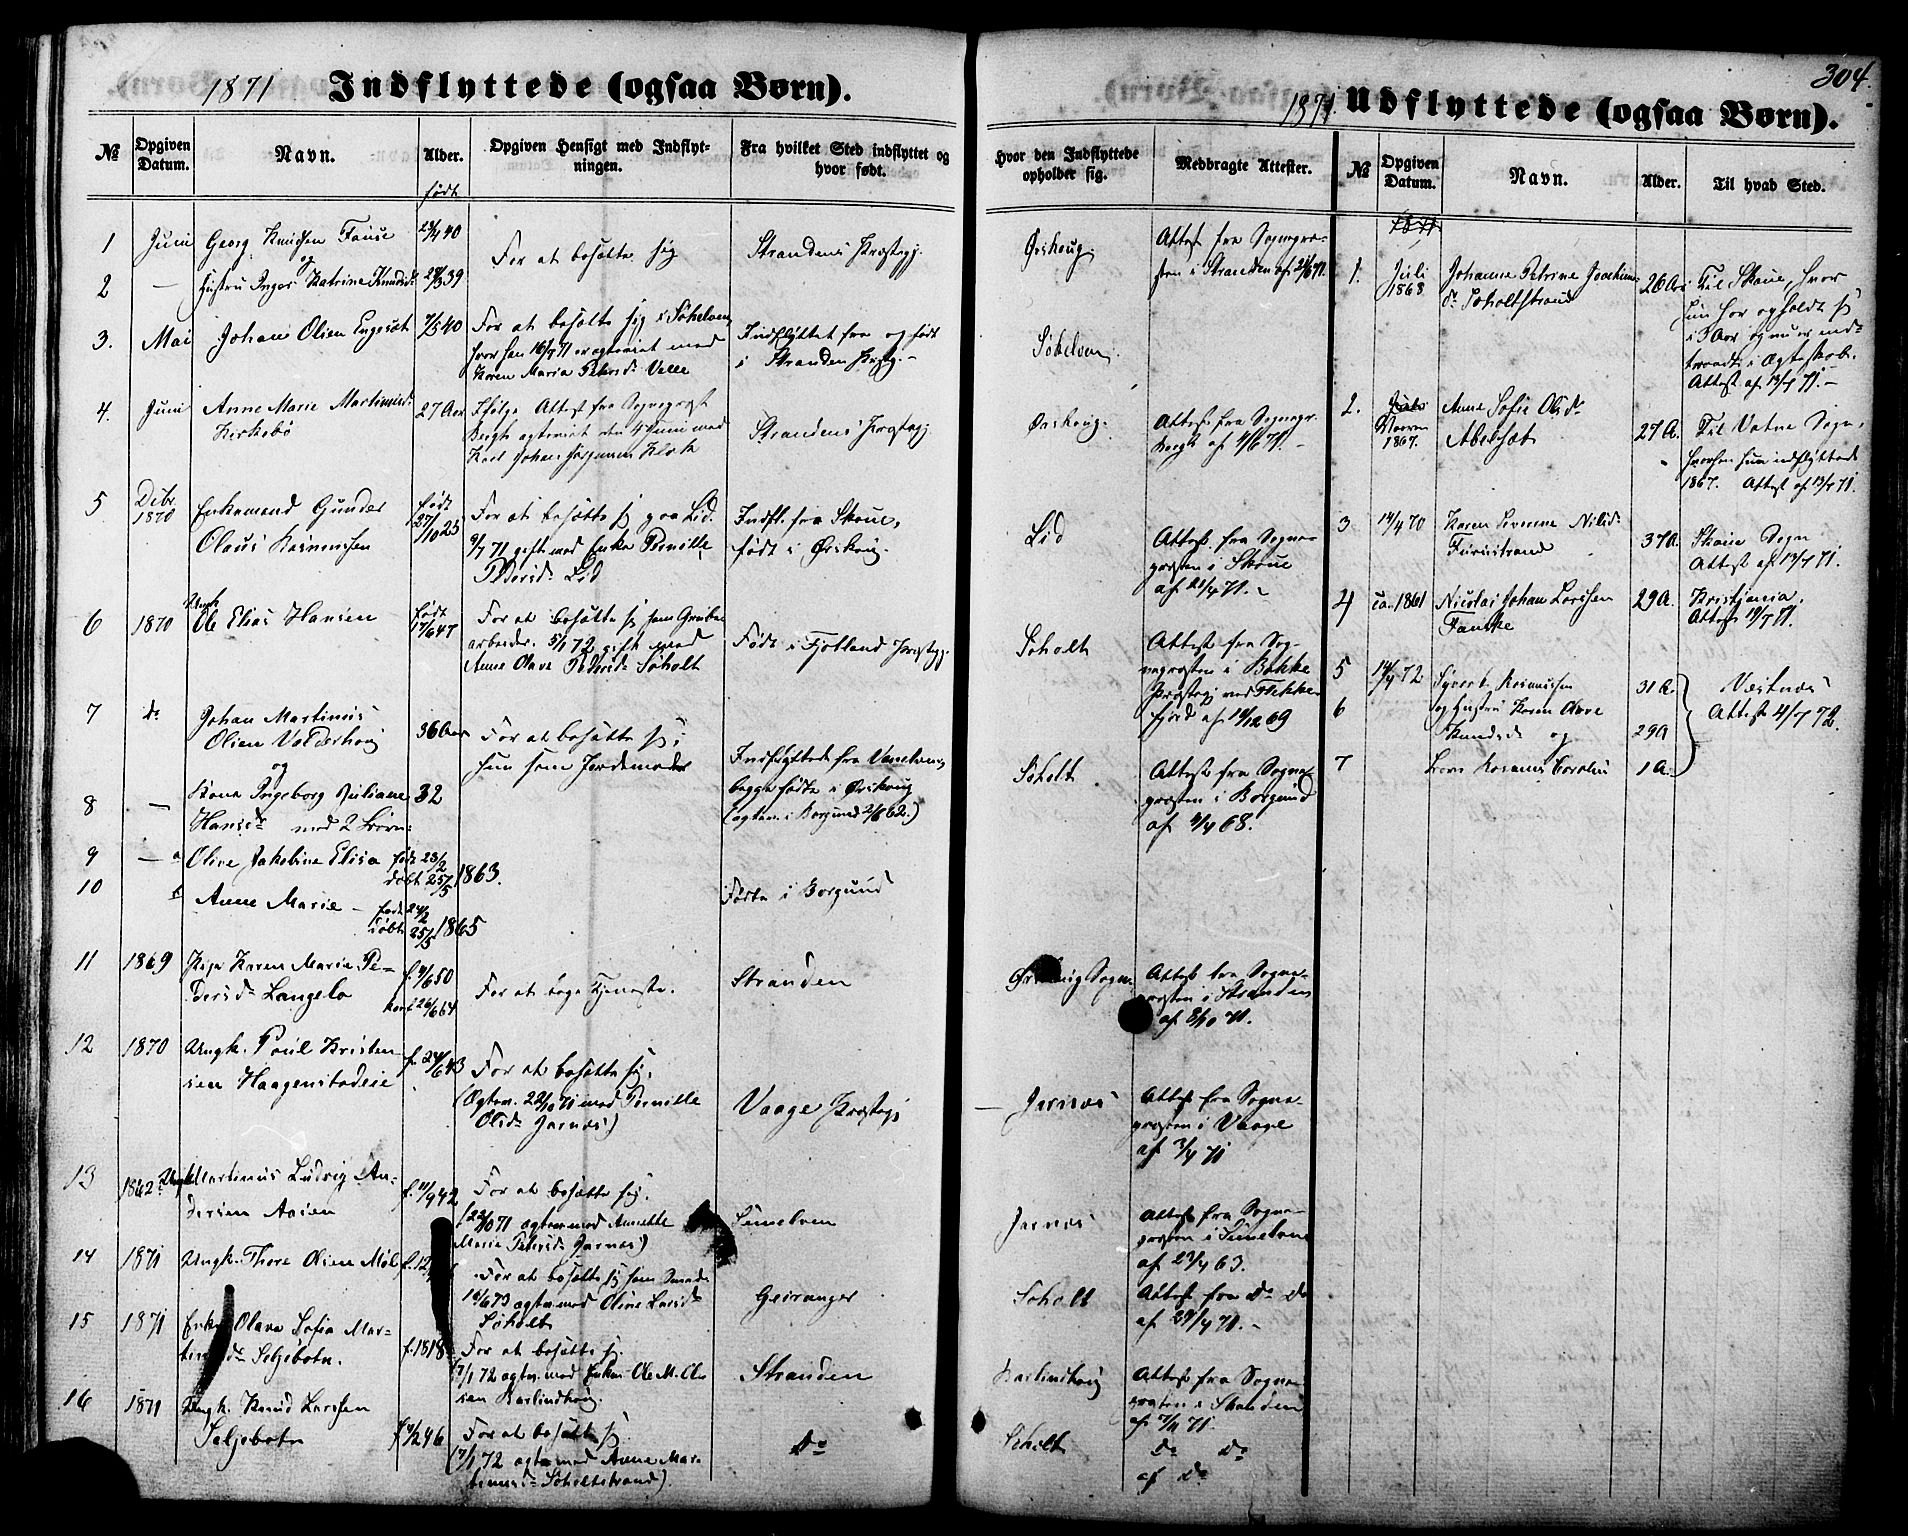 1871 Indflyttede (ogsaa Børn).
№
Opgiven Datum.
Navn.
Alder.
født
Opgiven Hensigt med Indflyt-
ningen.
Fra hvilket Sted indflyttet og
hvor født.
Hvor den Indflyttede
opholder sig.
Medbragte Attester.
1 Juni Georg Knudsen Fause
og
For at bosætte sig
Strandens Præstegj.
Ørskoug.
Attest fra Sognepræ-
sten i Stranden af
2 — Hustru Inger Katrine Knudsd.
3. Mai Johan Olsen Engesæt 7/5 40
For at bosætte sig i Søhelven,
hvor han 16/7 71 er ægteviet med
Karen Maria Petersd. Velle
Indflyttet fra og født
i Stranden Præstgj.-
Søhelven
4. Juni Anne Marie Martinusd.
Kirkebø
27 Aar
Ifølge Attest fra Sognepræst
Bergh ægteviet den 4 Juni med
Karl Johan Jørgensen
Strandens Præstegj.
Ørskoug.
Attest fra Sognepr.
Bergh af 4/6 71. -
5 Debr 1870 Enkemand Gunder
Olaus Rasmussen
født
27/10 25
For at bosætte sig paa Lid.
9/7 71 gift med Enke Pernille
Pedersd. Lid
Indfl. fra Skoue,
født i Ørskoug.
Lid
Attest fra Sogne-
præsten i Skoue
af 21/4 71. -
6 1870 Ungk.
Ole Elias Hansen
født
17/6 47
For at bosætte sig som Grube
arbeider. 5/1 72 gift med
Anne Olave Pedersd. Søholt
Født i Fjotland Præstegj.
Søholt
Attest fra Sog-
nepræsten i Bakke
Præstegj ved Flekke
fjord af 14/12 69
7 do Johan Martinus
Olsen Valderhoug
og
36 Aar
For at bosætte sig;
hun som Jordemoder
Indflyttede fra Vanelven,
begge fødte i Ørskoug
(ægtev. i Borgund 2/6 62.)
Søholt
Attest fra Sogne-
præsten i Borgund
af 4/4 68.
8 — Kone Ingeborg Juliane
Hansdr. med 2 Børn:
32
9 — a Olive Jakobine Elisa født 23/2
døbt 25/5 1863.
10 b Anne Marie - født 24/2
døbt 25/5 1865
Fødte i Borgund
11 1869 Pige Karen Marie Pe-
dersd. Langelo
f. 9/6 50
konf 26/6 64
For at søge Tjeneste.
Stranden
Sogn.
Attest fra Sogne-
præsten i Stranden
af 8/10 71.
12 1870 Ungk. Poul Kristen-
sen Haagenstadeie
f. 24/6 43
For at bosætte sig.
(Ægtev. 22/10 71 med Pernille
Olsd. Jarnæs)
Vaage Præstegj
— Jarnæs
Attest fra Sogne-
præsten i Vaage
af 3/4 71
13 1862 Ungk Martinus Ludvig An-
dersen Aasen
f. 11/9 42
For at bosætte sig.
(22/10 71 ægtev. med Annette
Marie Petersd. Jarnæs)
Sunelven
Jarnæs
Attest fra Sogne-
præsten i Sunelven
af 23/4 63.
14 1871 Ungk. Thore Olsen Møl
f. 12
For at bosætte sig som Smed.
16/6 73 ægtev. med Oline Larsd.
Søholt
Geiranger
Søholt
Attest fra Do Do
af 29/4 71. -
15 1871 Enke Olava Sofia Mar-
tinusd. Seljebotn.
f. 1818
For at bosætte sig.
(7/1 72 ægtev. med Enkem. Ole M. Ol-
sen Karlindhoug.
Stranden
Karlindhoug
Attest fra Sogne-
præsten i Stranden
af 7/11 71.
16 1871 Ungk. Knud Larssen
Seljebotn
f 4/2 46
For at bosætte sig.
(7/1 72 ægtev. med Anne Mar-
tinusd. Søholtstrand).
Do
Søholt
Do Do
af Do
304.
1871. Udflyttede (ogsaa Børn).
№
Opgiven Datum.
Navn.
Alder.
Til hvad Sted.
1871
1. Juli 1868 Johanne Petrine Joachims
d. Søholtstrand
26 Aar
Til Skoue, hvor
hun har opholdt sig
i 3 Aar og nu er ind-
traadt i Ægteskab.
Attest af 13/7 71. -
2. Novem 1867. Anne Sofie Olsd.
Abelsæt
27 A.
Til Vatne Sogn,
hvorhen hun indflyttede
1867. Attest af 13/7 71.
3 14/4 70 Karen Severine Nilsd.
Furustrand
37 A.
Skoue Sogn
Attest af 13/7 71.
4 ca. 1861 Nicolai Johan Larssen
Fauske
29 A.
Kristjania.
Attest 19/7 71.
5 14/4 72 Syvert Rasmussen 31 A.
6 og Hustru Karen Olave
Knudsd. og 29 A
7 Barn Rasmus Carolus 1 A.
Vestnæs
Attest 4/7 72.